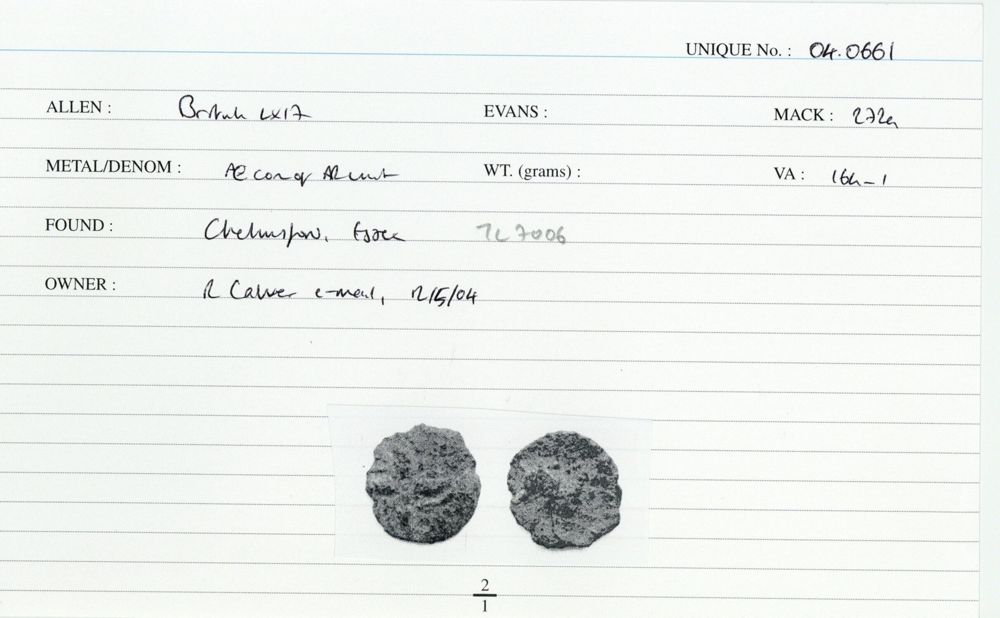 UNIQUE No. : 04.0661
ALLEN : British LX17 EVANS : MACK : 272a
METAL/DENOM : Æ core of AR unit WT. (grams) : VA : 164-1
FOUND : Chelmsford, Essex TL7006
OWNER : R Calver e-mail, 12/5/04
2
1